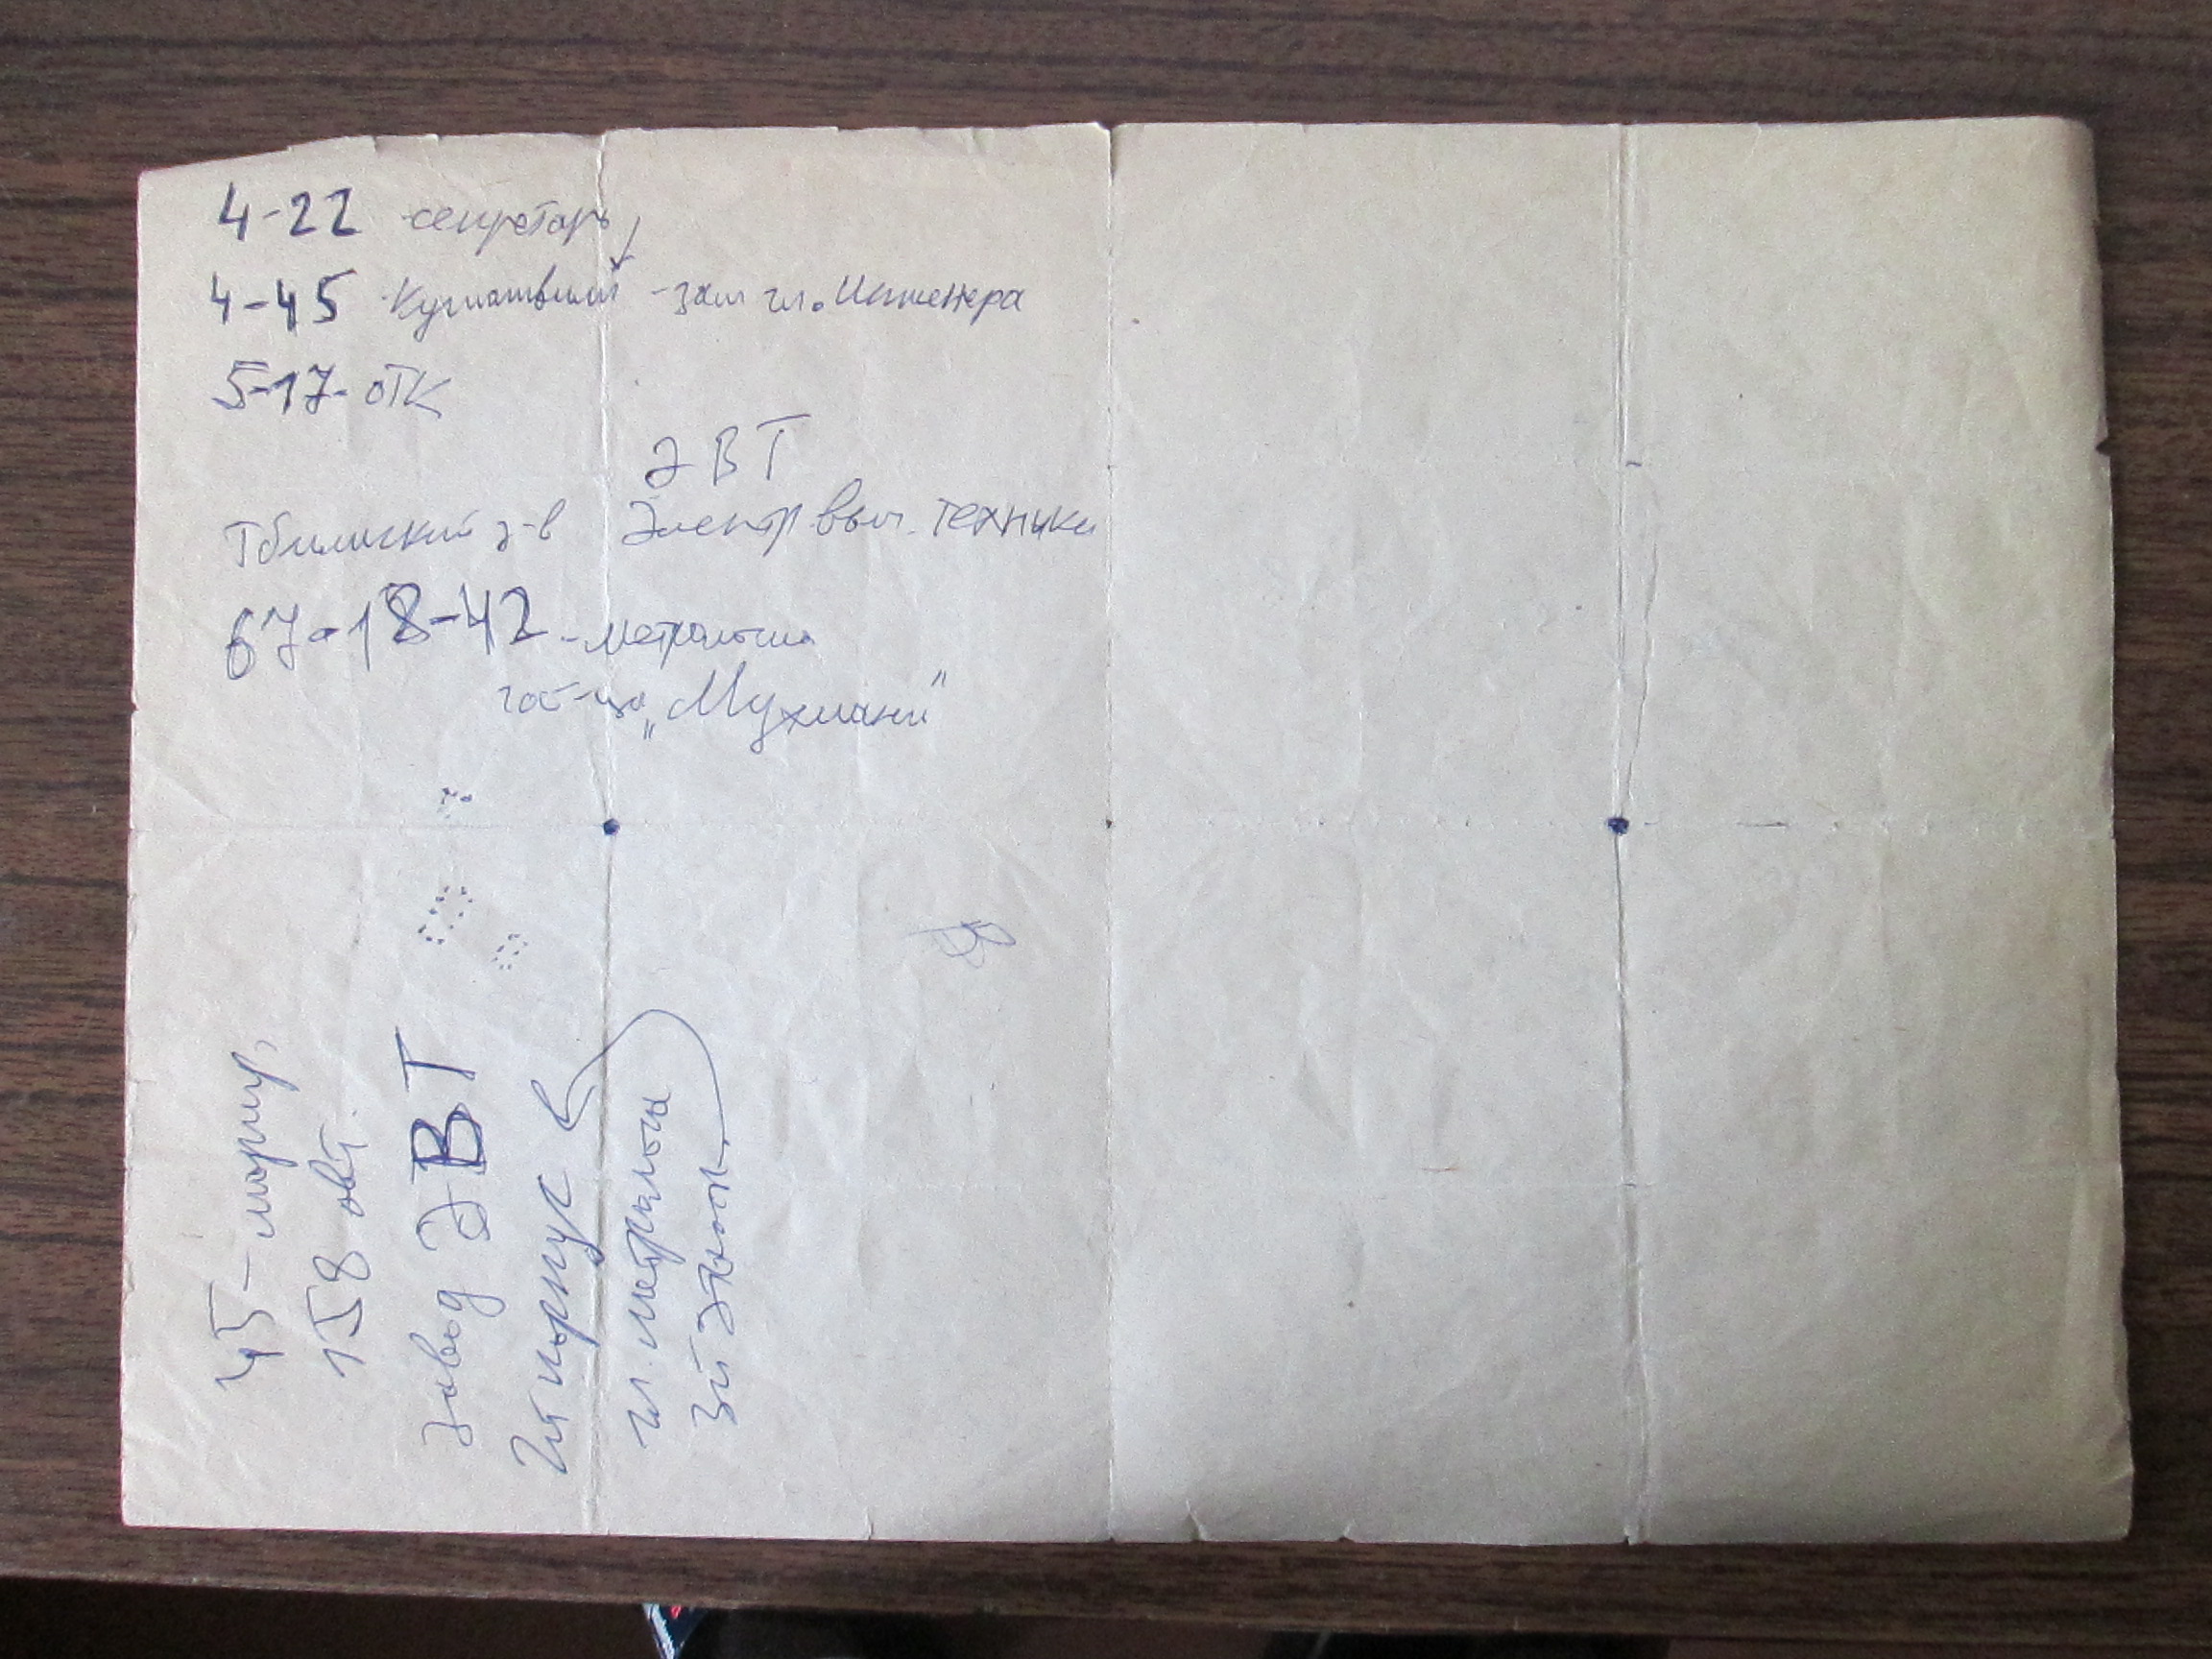 4-22 секретарь
4-45 - зам гл. Инженера
5-17- ОТК
ЭВТ
Тбилиский з-в Электр выч. техники
67-18-42 - Метрология
гос-ца „Мухиани"
45 - маршр,
158 авт.
Завод ЭВТ
Гл. метролога
3й Этаж